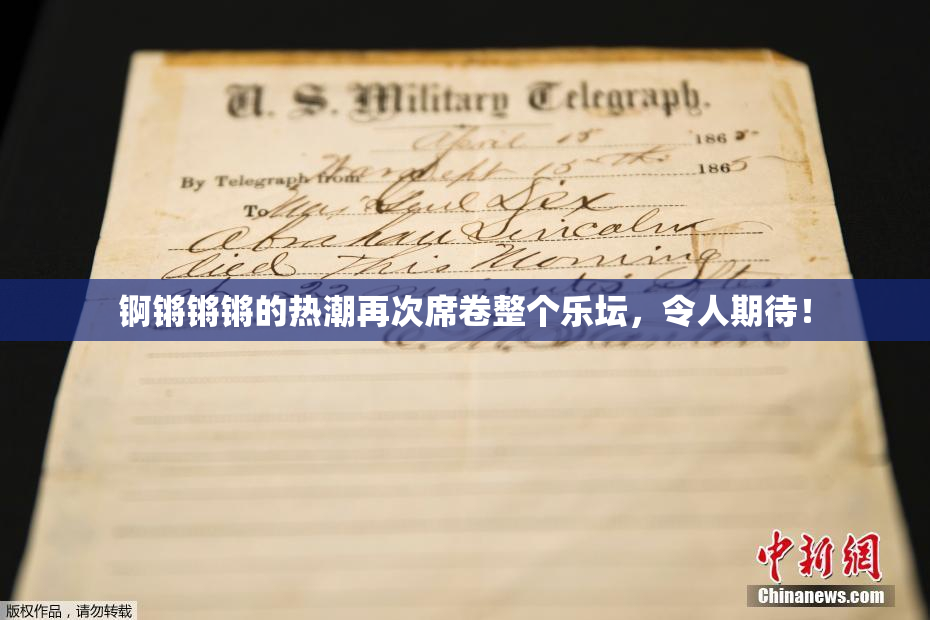 U. S. Military Telegraph.
April 15 1865
By Telegraph from War Dept 15th 1865
To Maj Genl Dix
Abraham Lincoln
died This Morning
at 22 minutes After
锕锵锵锵的热潮再次席卷整个乐坛，令人期待！
E. M. Stanton
中新網
Chinanews.com
版权作品，请勿转载